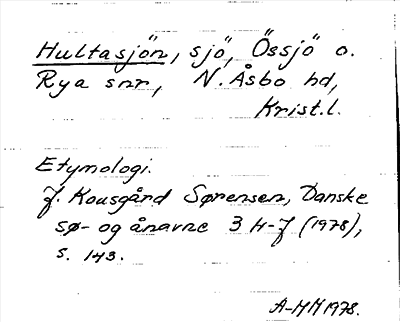 Hultasjön, sjö, Össjö o.
Rya snr, N. Åsbo hd,
Krist.l.
Etymologi.
J. Kousgård Sørensen, Danske
sø- og ånavne 3 H-J (1978),
s. 143.
A-MH 1978.